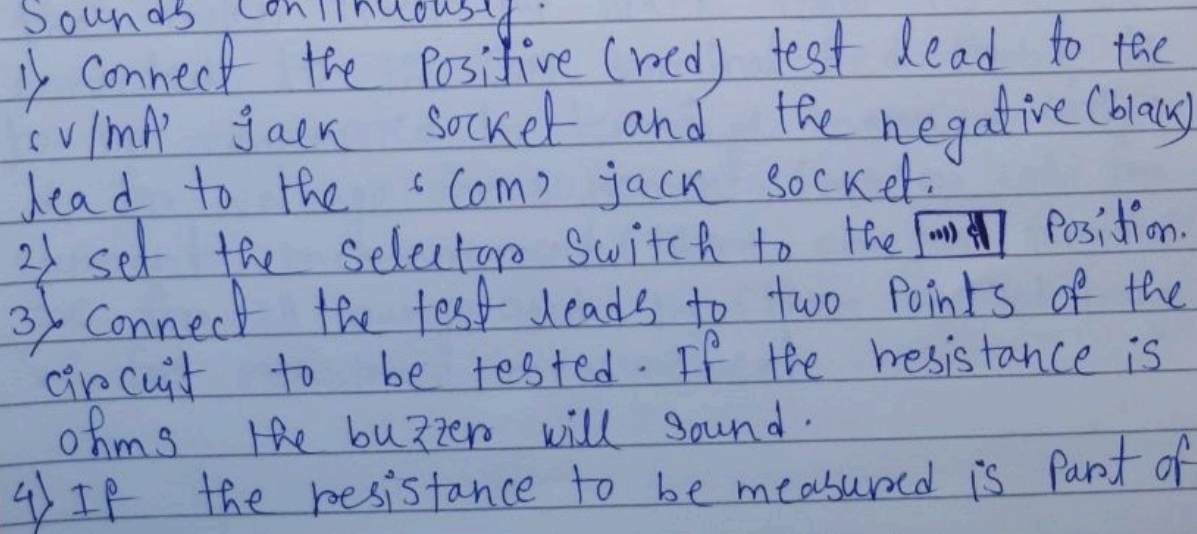 Sounds continuously.
1) Connect the positive (red) test lead to the
'V/mA' jack socket and the negative (black)
lead to the 'Com' jack socket.
2) set the selector switch to the position.
3) Connect the test leads to two points of the
circuit to be tested. If the resistance is
ohms the buzzer will sound.
4) If the resistance to be measured is part of